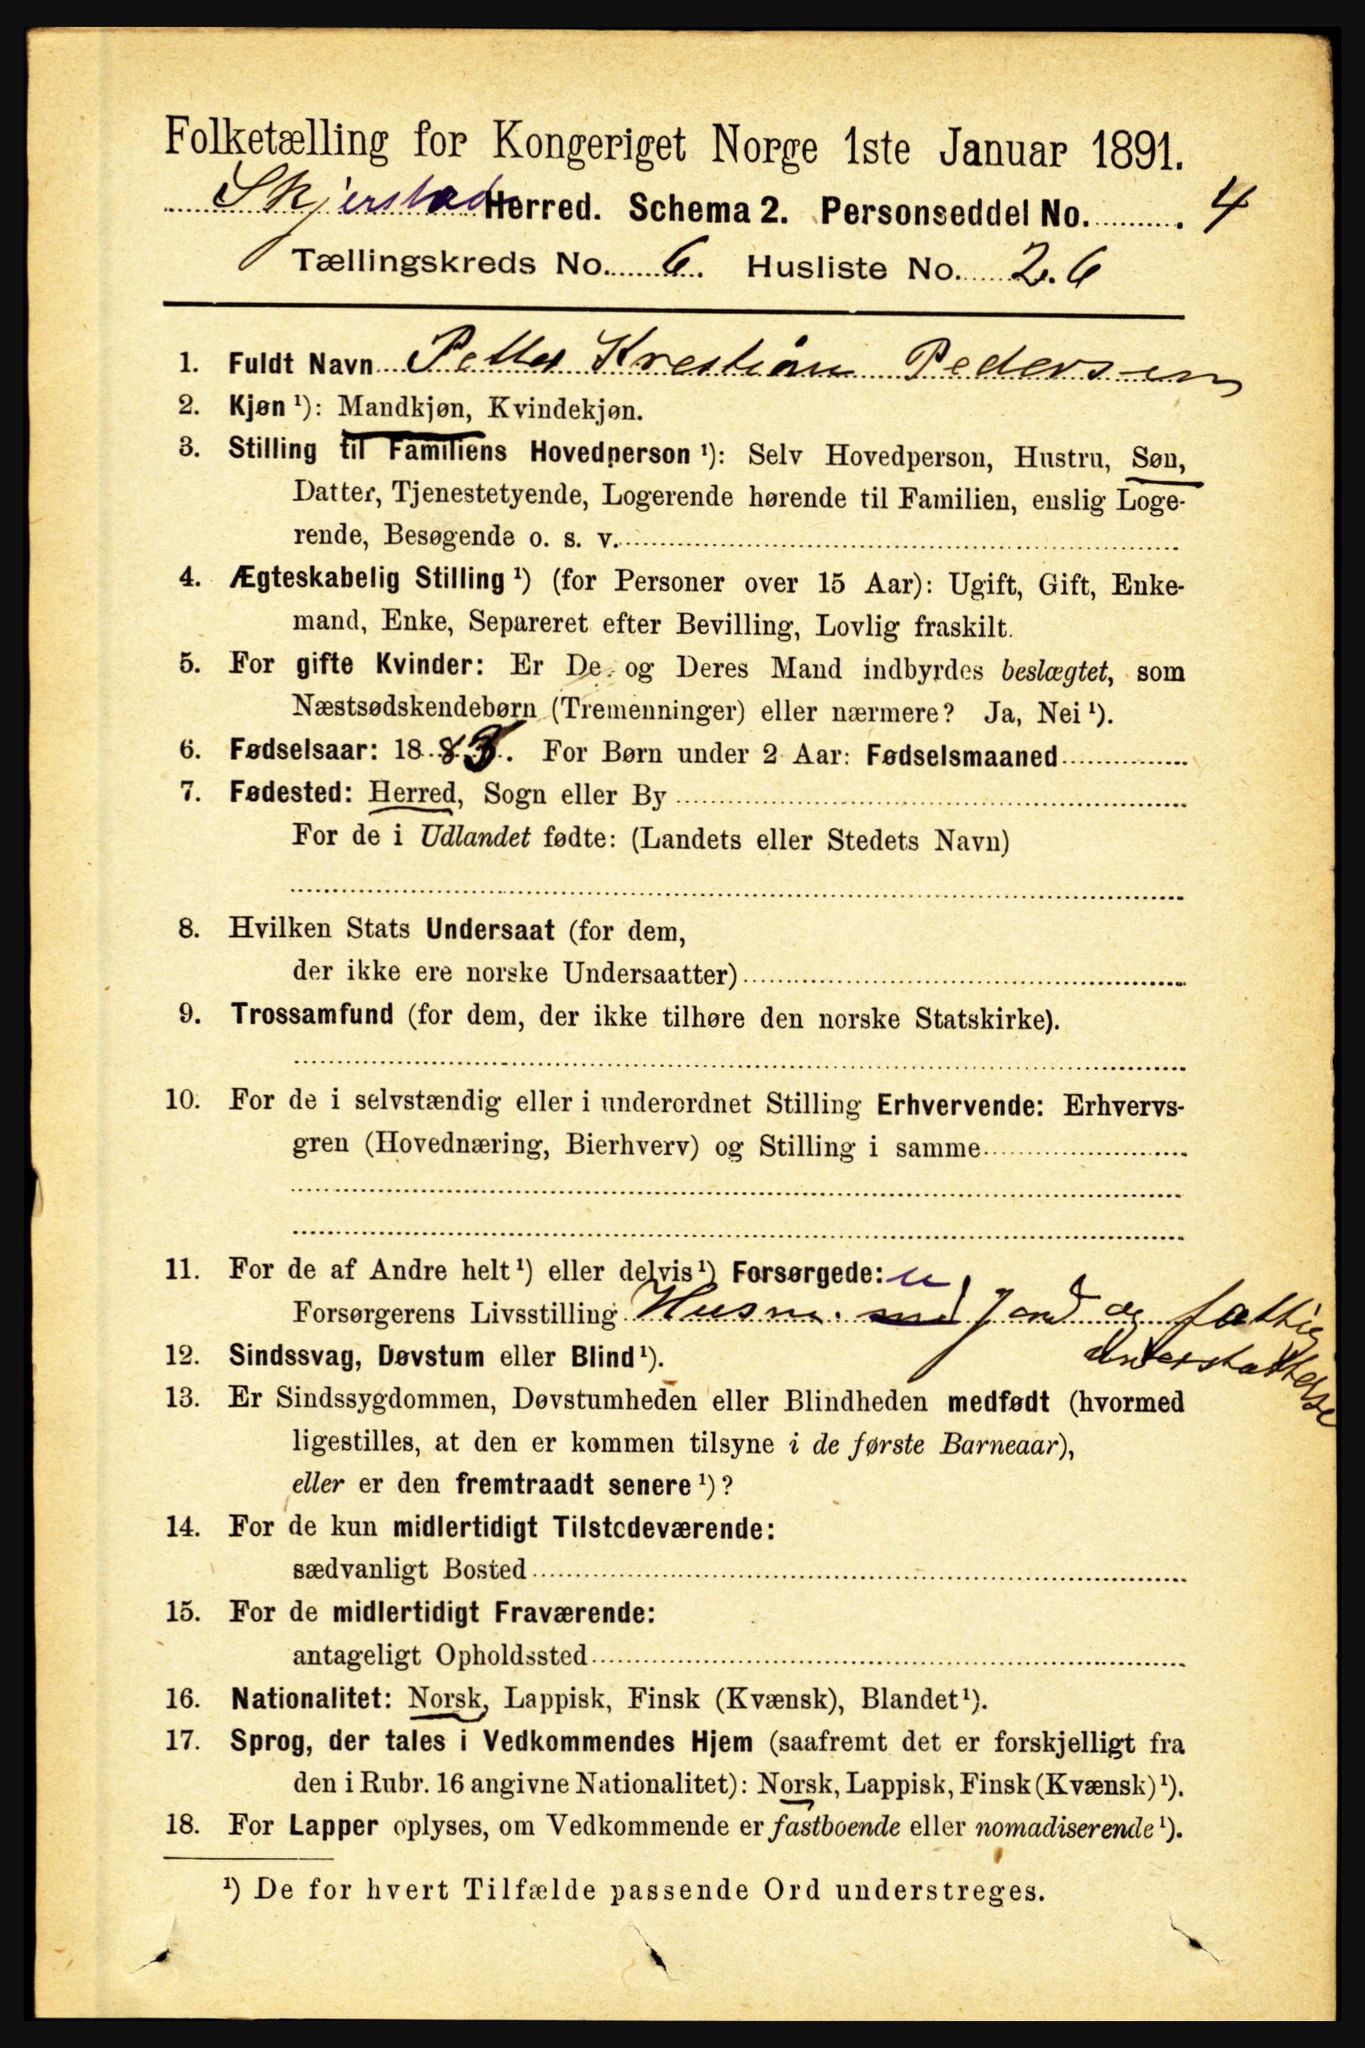 Folketælling for Kongeriget Norge 1ste Januar 1891.
Skjerstad Herred. Schema 2. Personseddel No. 4
Tællingskreds No. 6. Husliste No. 26
1. Fuldt Navn Petter Krestian Pedersen
2. Kjøn ¹): Mandkjøn, Kvindekjøn.
3. Stilling til Familiens Hovedperson ¹): Selv Hovedperson, Hustru, Søn,
Datter, Tjenestetyende, Logerende hørende til Familien, enslig Loge-
rende, Besøgende o. s. v.
4. Ægteskabelig Stilling ¹) (for Personer over 15 Aar): Ugift, Gift, Enke-
mand, Enke, Separeret efter Bevilling, Lovlig fraskilt.
5. For gifte Kvinder: Er De og Deres Mand indbyrdes beslægtet, som
Næstsødskendebørn (Tremenninger) eller nærmere? Ja, Nei ¹).
6. Fødselsaar: 1883. For Børn under 2 Aar: Fødselsmaaned
7. Fødested: Herred, Sogn eller By
For de i Udlandet fødte: (Landets eller Stedets Navn)
8. Hvilken Stats Undersaat (for dem,
der ikke ere norske Undersaatter)
9. Trossamfund (for dem, der ikke tilhøre den norske Statskirke).
10. For de i selvstændig eller i underordnet Stilling Erhvervende: Erhvervs-
gren (Hovednæring, Bierhverv) og Stilling i samme
11. For de af Andre helt ¹) eller delvis ¹) Forsørgede:
Forsørgerens Livsstilling Husm. med Jord og fattig
understøttelse
12. Sindssvag, Døvstum eller Blind ¹).
13. Er Sindssygdommen, Døvstumheden eller Blindheden medfødt (hvormed
ligestilles, at den er kommen tilsyne i de første Barneaar),
eller er den fremtraadt senere ¹)?
14. For de kun midlertidigt Tilstedeværende:
sædvanligt Bosted
15. For de midlertidigt Fraværende:
antageligt Opholdssted
16. Nationalitet: Norsk, Lappisk, Finsk (Kvænsk), Blandet ¹).
17. Sprog, der tales i Vedkommendes Hjem (saafremt det er forskjelligt fra
den i Rubr. 16 angivne Nationalitet): Norsk, Lappisk, Finsk (Kvænsk) ¹).
18. For Lapper oplyses, om Vedkommende er fastboende eller nomadiserende ¹).
¹) De for hvert Tilfælde passende Ord understreges.